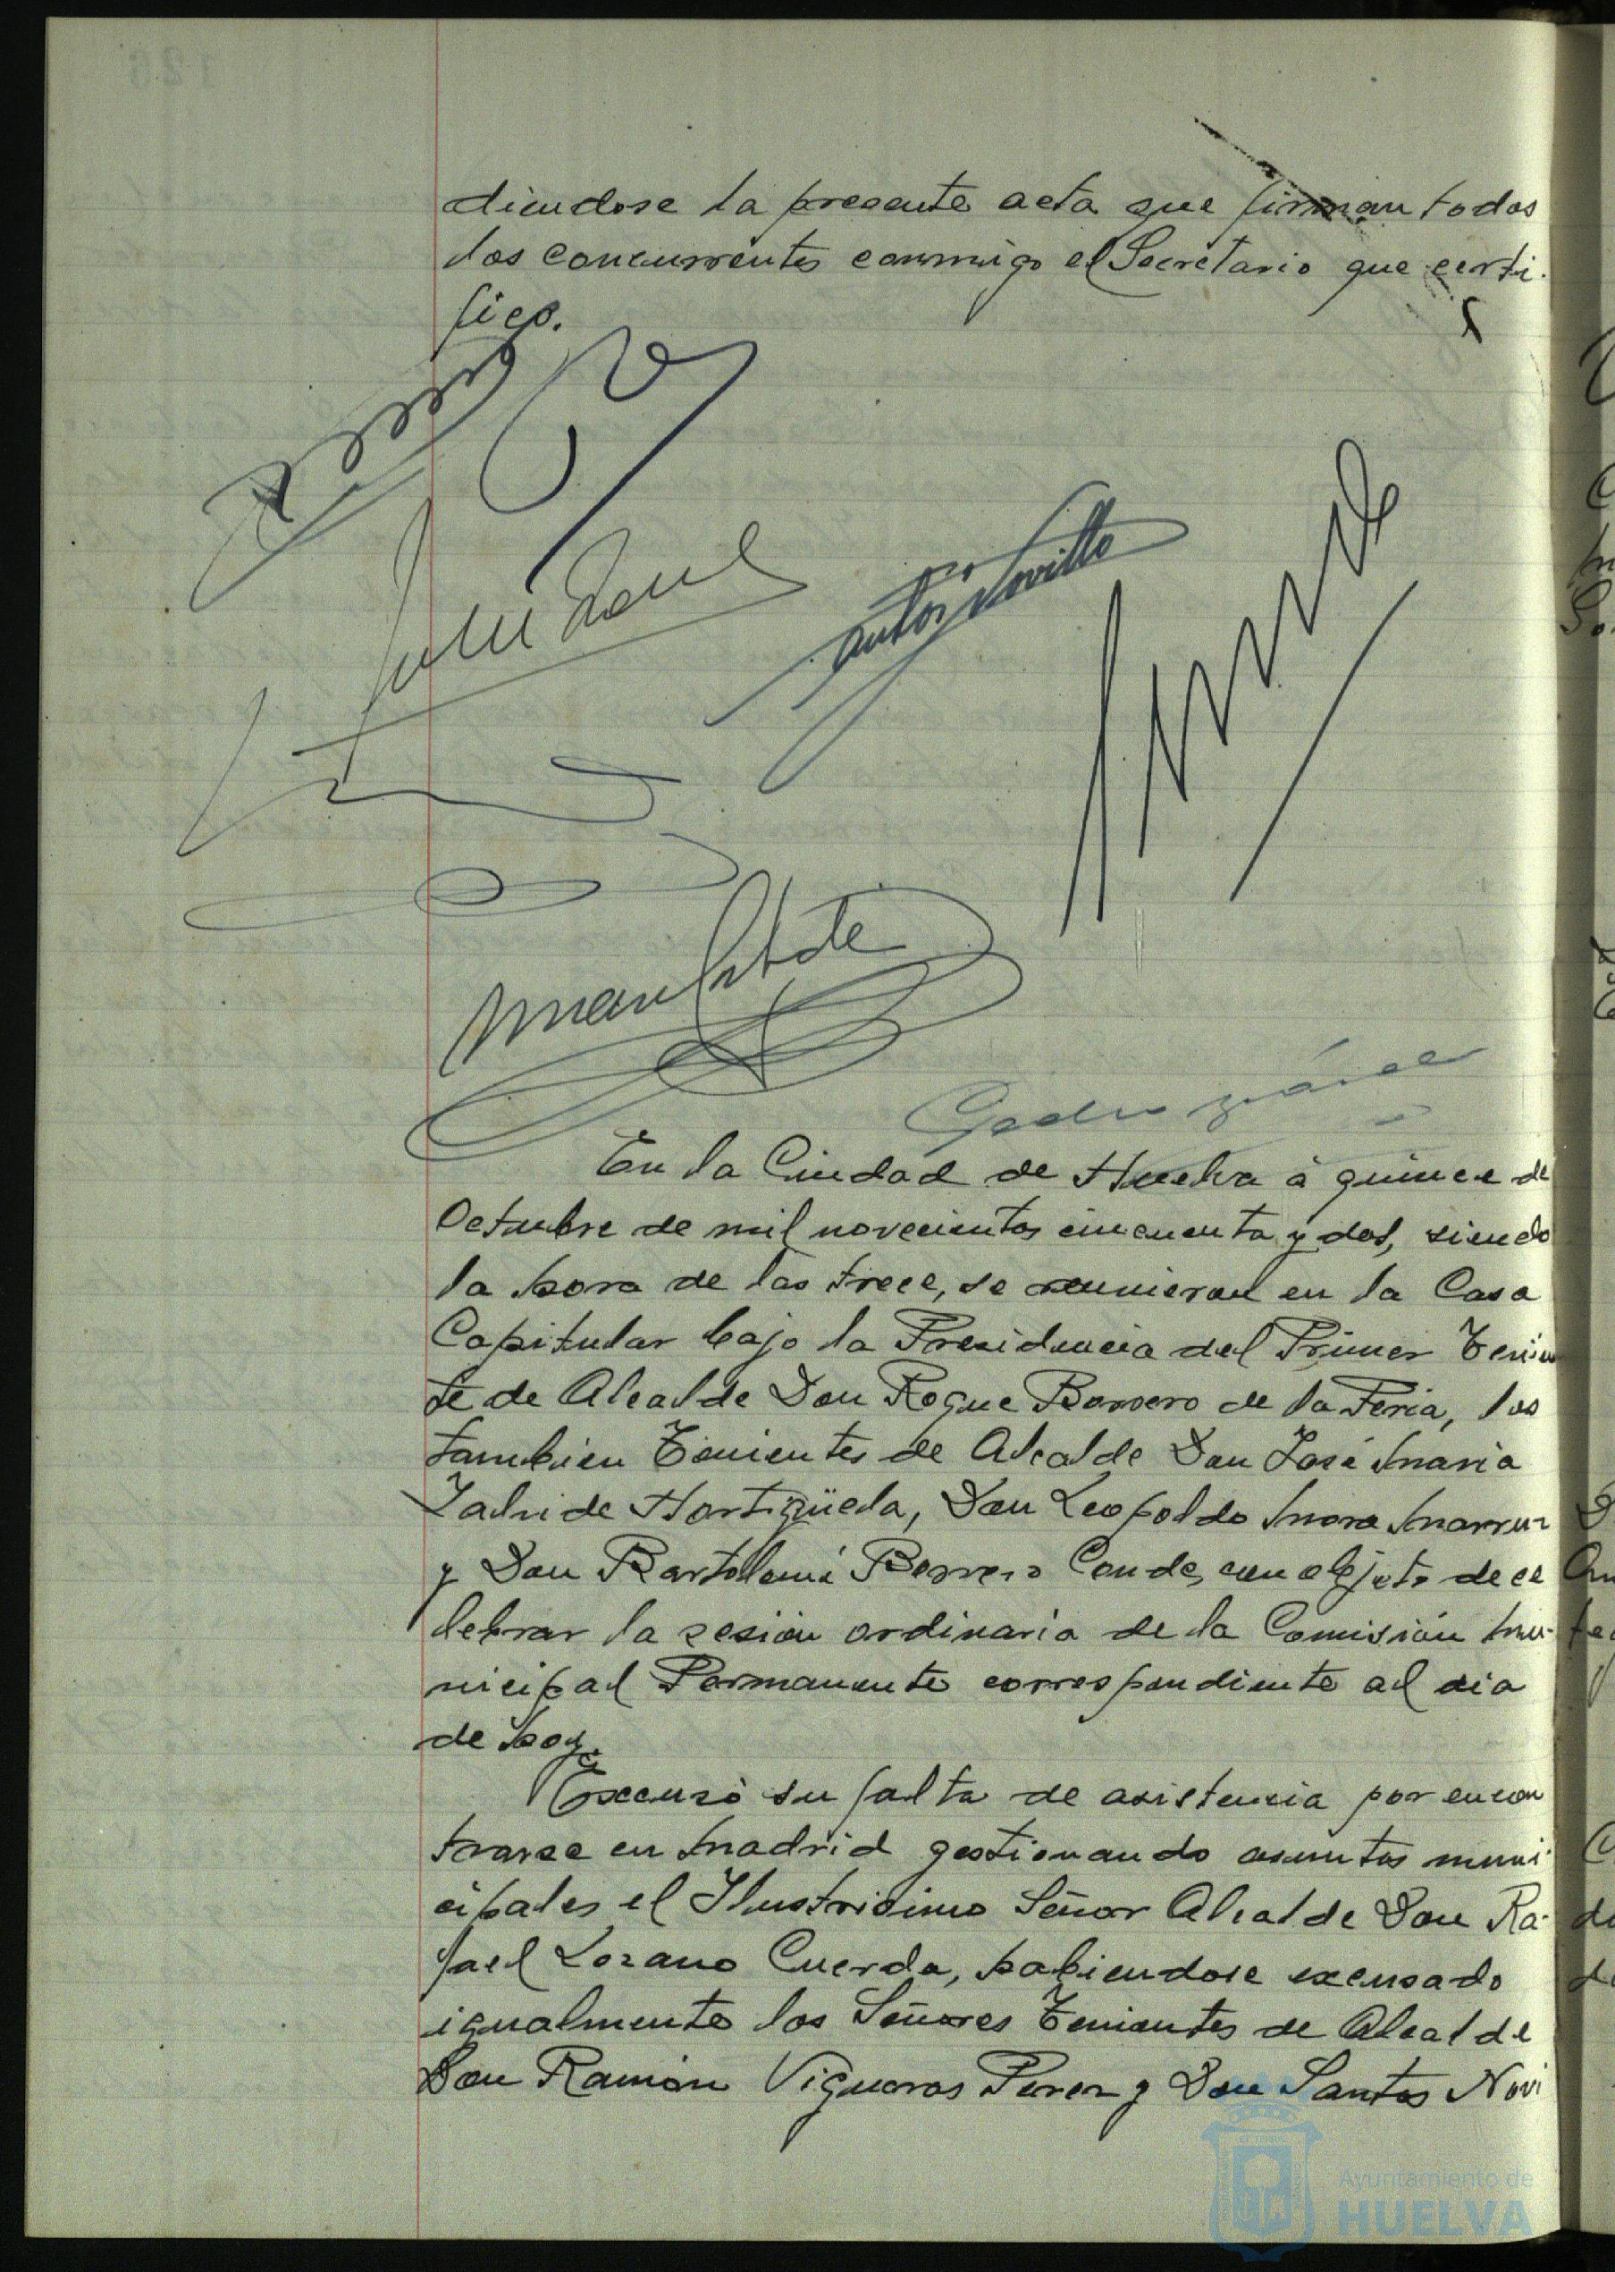 diendose la presente acta que firman todos
los concurrentes conmigo el Secretario que certi-
fico.
Santos Novillo
En la Ciudad de Huelva á quince de
Octubre de mil novecientos cincuenta y dos, siendo
la hora de las trece, se reunieron en la Casa
Capitular bajo la Presidencia del Primer Tenien
te de Alcalde Don Roque Borrero de la Feria, los
tambien Tenientes de Alcalde Don José Maria
Jalvide Hortigüela, Don Leopoldo Mora
y Don Bartolomé Borrero Conde, con objeto de ce
lebrar la sesión ordinaria de la Comisión Mu-
nicipal Permanente correspondiente al dia
de hoy.
Excusó su falta de asistencia por encon
trarse en Madrid gestionando asuntos muni
cipales el Ilustrisimo Señor Alcalde Don Ra-
fael Lozano Cuerda, habiendose excusado
igualmente los Señores Tenientes de Alcalde
Don Ramón Vigueras Perez y Don Santos Novi
Ayuntamiento de
HUELVA